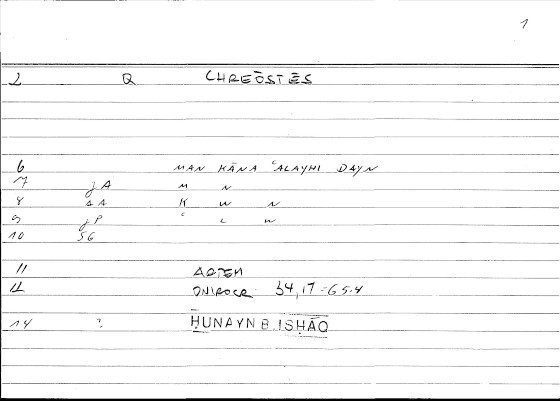 1
2 Q CHREŌSTĒS
6 MAN KĀNA ʿALAYHI DAYN
7 jA M N
8 AA K W N
9 jP ʿ L W
10 SG
11 ARTEM
12 ONIROCR 34,17 = 65.4
14 ? ḤUNAYN B. ISḤĀQ